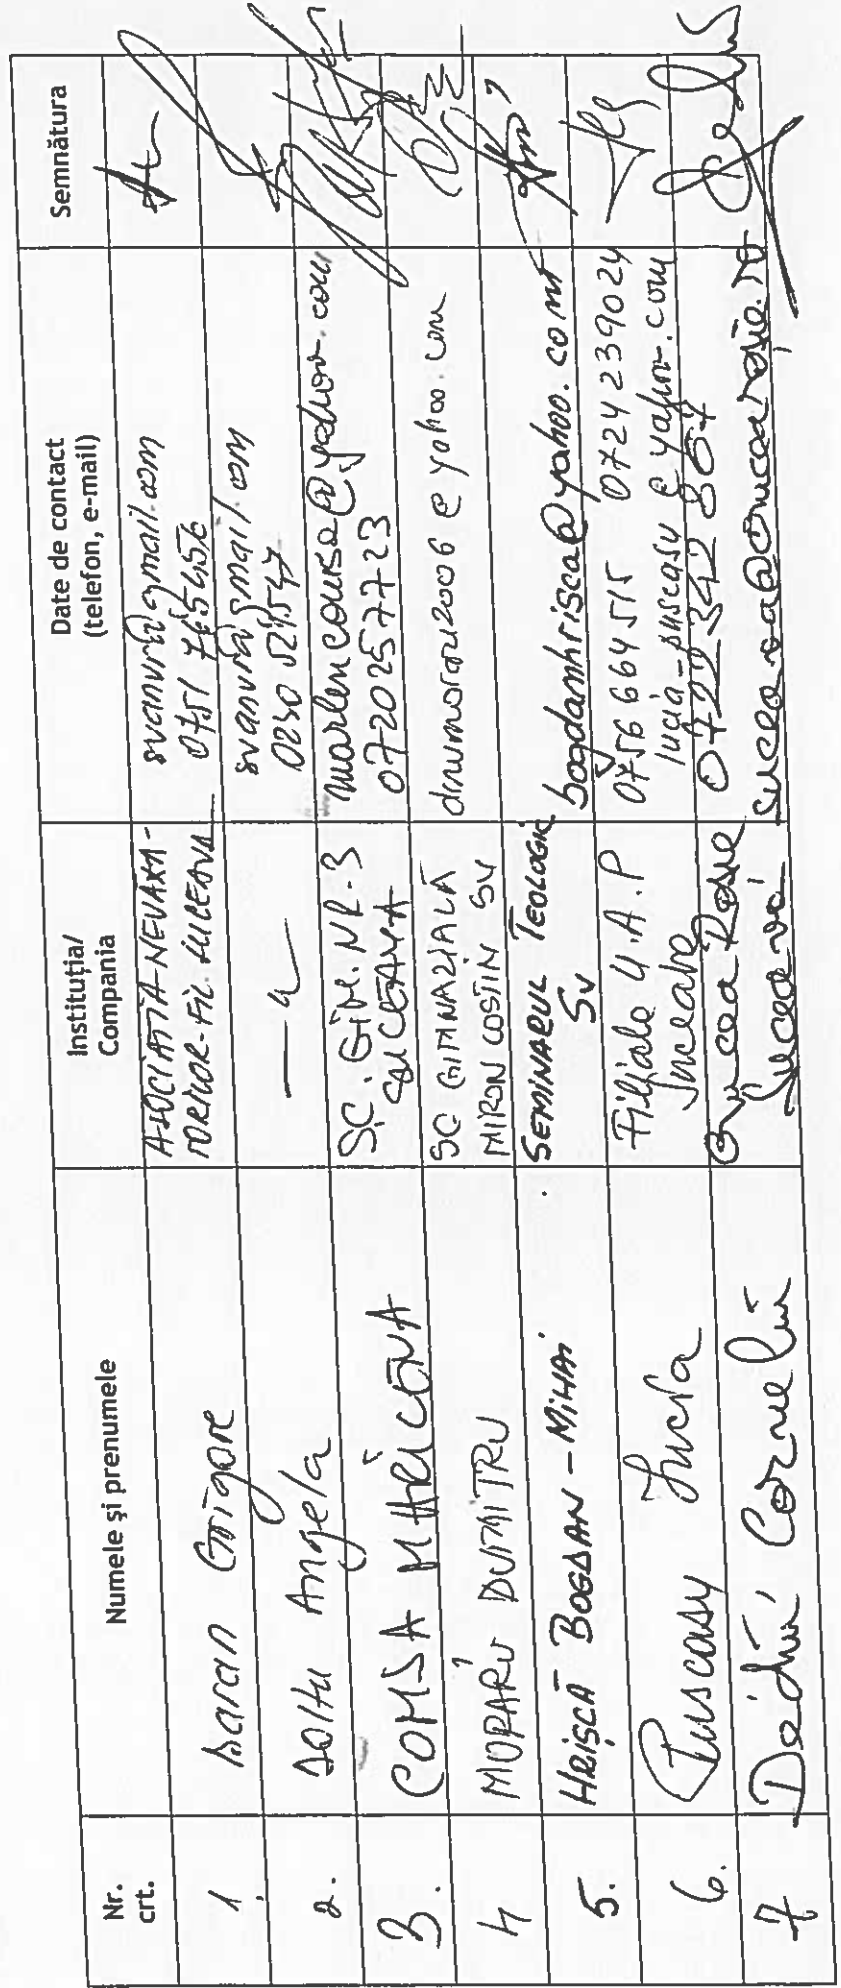 Nr. crt. Numele și prenumele Instituția/ Compania Date de contact (telefon, e-mail) Semnătura
1. Baran Grigore ASOCIAȚIA NEVĂZĂ-
TORILOR-FIL. SUCEAVA svanvr@gmail.com
0751 765456
2. Angela — " — svanvr@gmail.com
0230 521547
3. COMSA MARICENA SC. GIM. NR. 3
SUCEAVA
0720257723
4 MORARU DUMITRU SC GIMNAZIALĂ
MIRON COSTIN SV dinumoraru2006@yahoo.com
5. HRIȘCĂ BOGDAN-MIHAI SEMINARUL TEOLOGIC
SV bogdamhrisca@yahoo.com
6. Pușcașu Lucia Filiala U.A.P
Suceava 0756664515 0724239024
lucia_puscasu@yahoo.com
7 Corneliu Crucea Roșie
Suceava 0722342867
suceava@crucearosie.ro